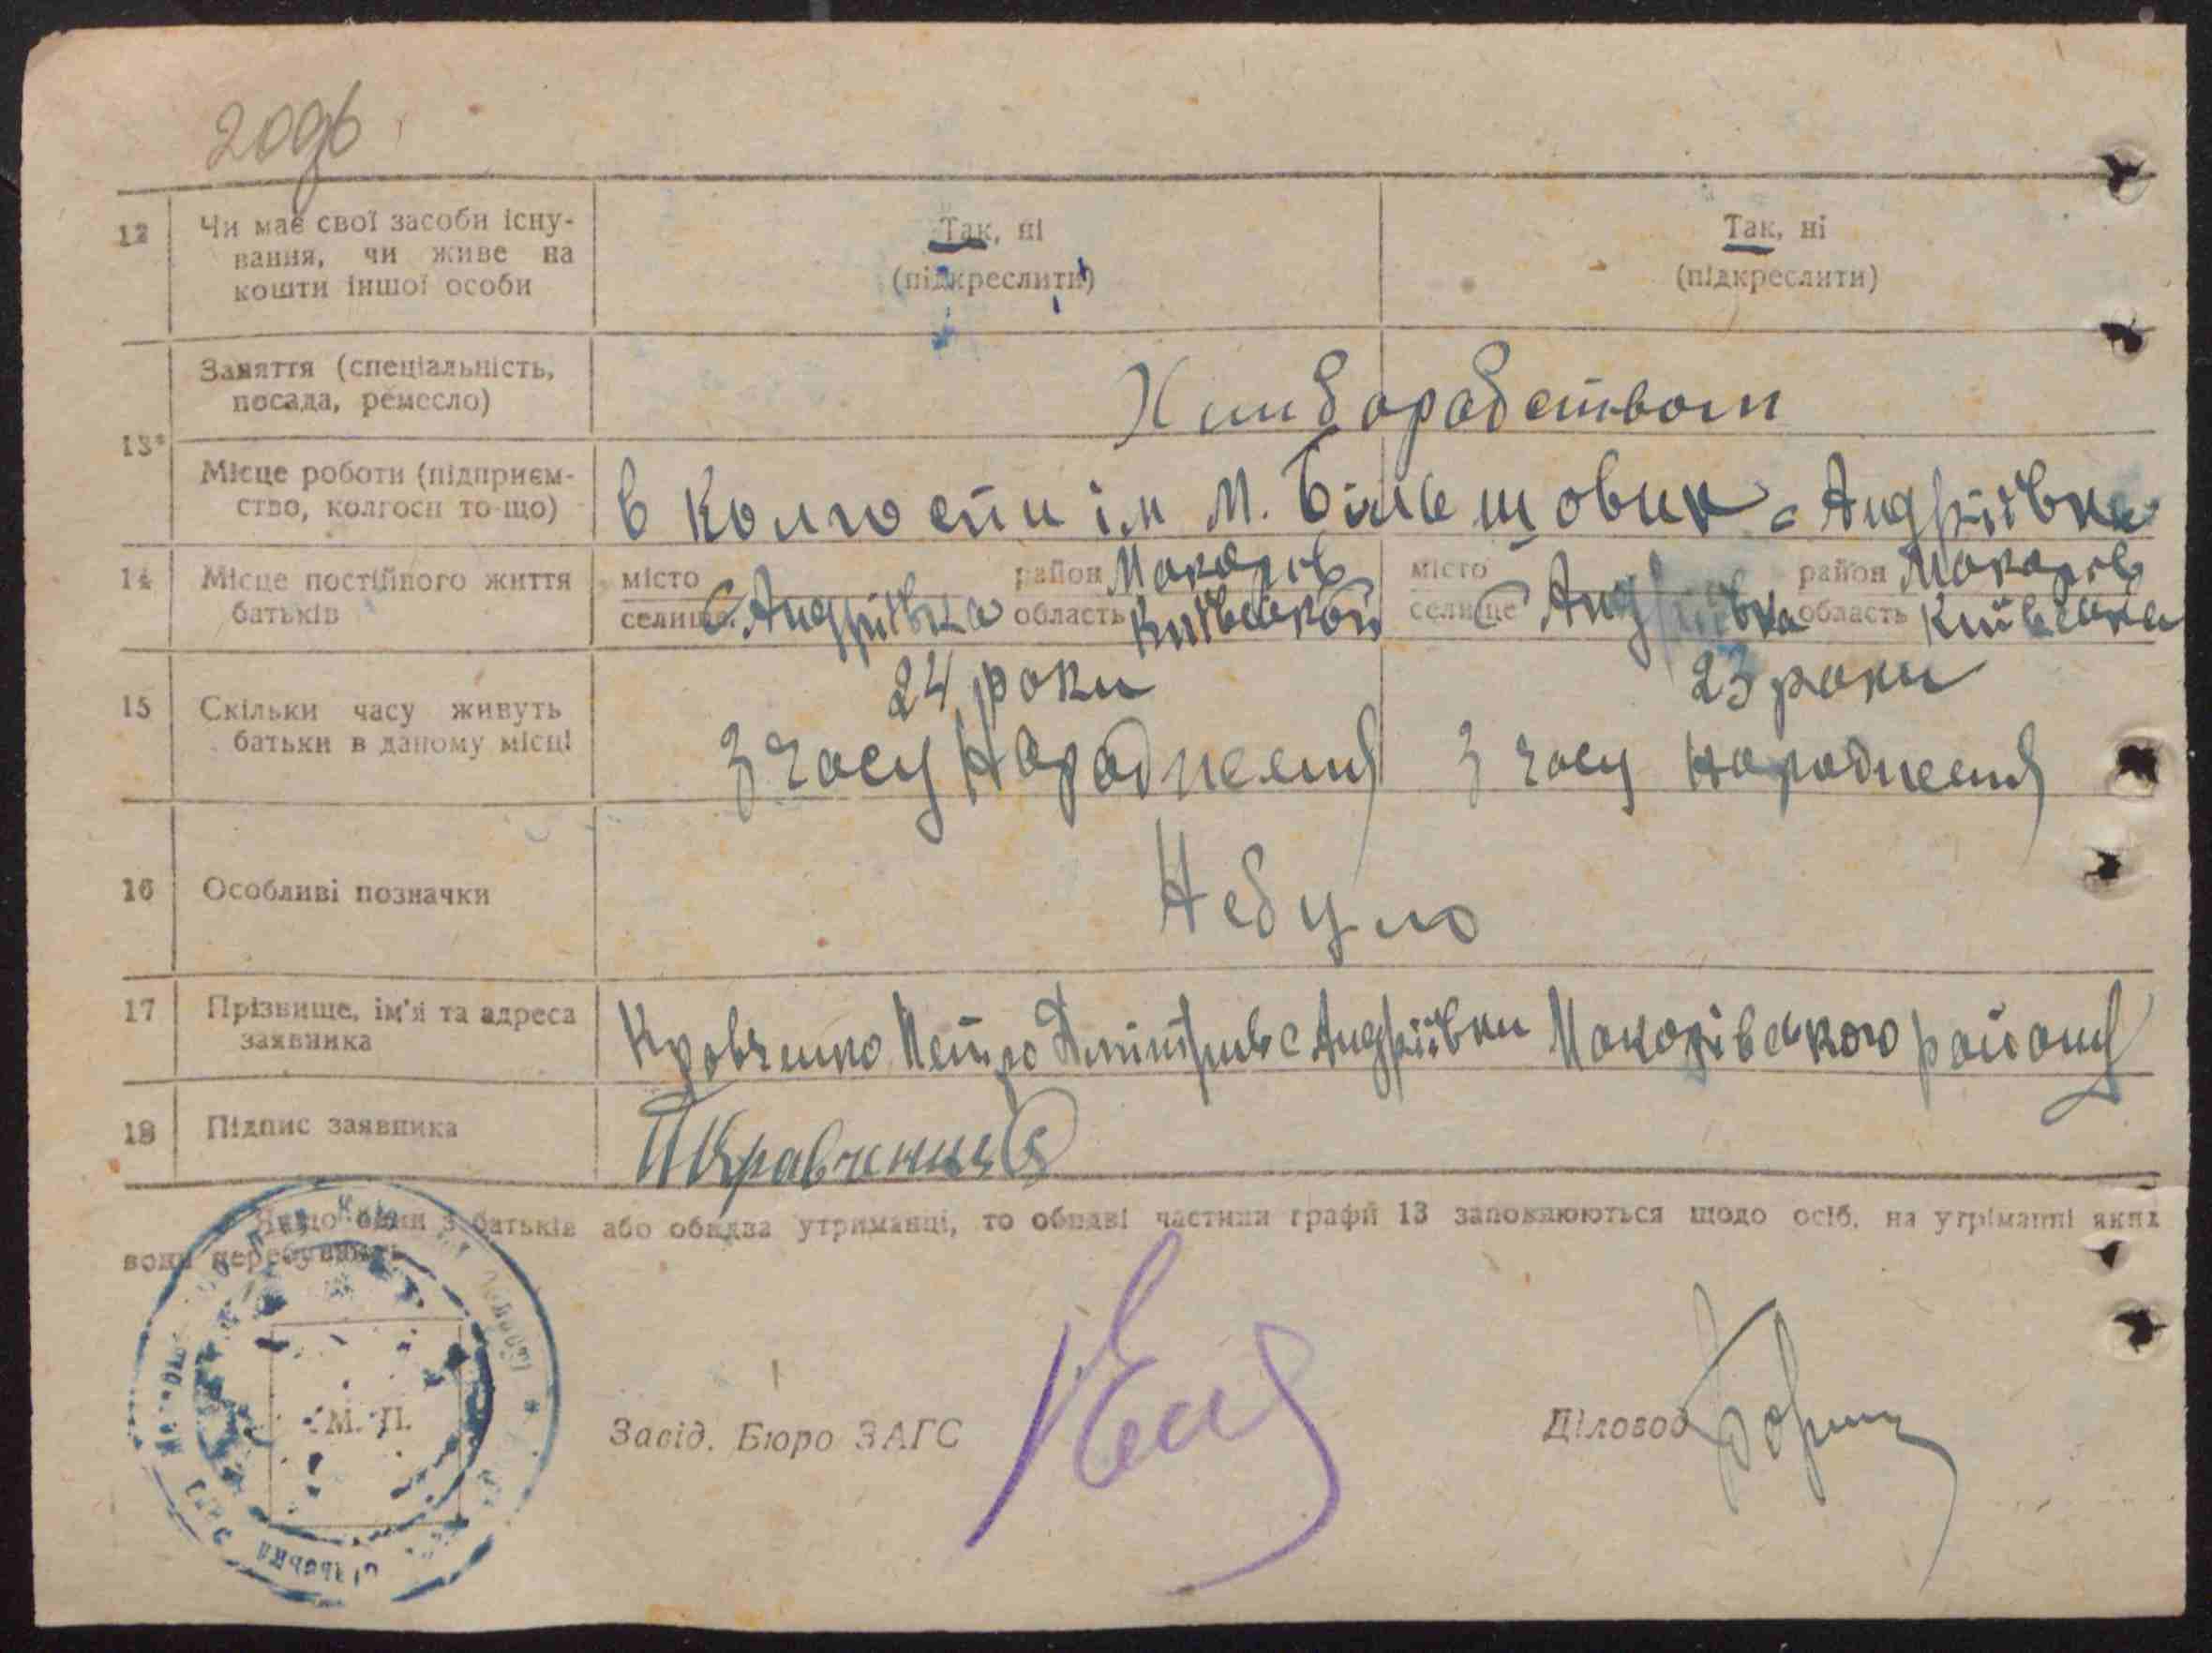 209б
12 Чи має свої засоби існу-
вання, чи живе на
кошти іншої особи
Так, ні
(підкреслити)
Так, ні
(підкреслити)
13*
Заняття (спеціальність,
посада, ремесло)
Хлиборобством
Місце роботи (підприєм-
ство, колгосп то-що)
в колгоспи ім М. Більшовик с Андріївка
14 Місце постійного життя
батьків
місто
селище с Андріївка
район Макарів
область Київської
місто
селище с Андріївка
район Макарів
область Київська
15 Скільки часу живуть
батьки в даному місці
24 роки
З часу народження
23 роки
З часу народження
16 Особливі позначки
Небуло
17 Прізвище, ім'я та адреса
заявника
Кровченко Петро Дмітрив с Андріївки Макарівського району
18 Підпис заявника
ПКравченко
Якщо один з батьків або обидва утриманці, то обидві частини графи 13 заповнюються щодо осіб, на утриманні яких
вони перебувають
М. П.
Завід. Бюро ЗАГС
Діловод